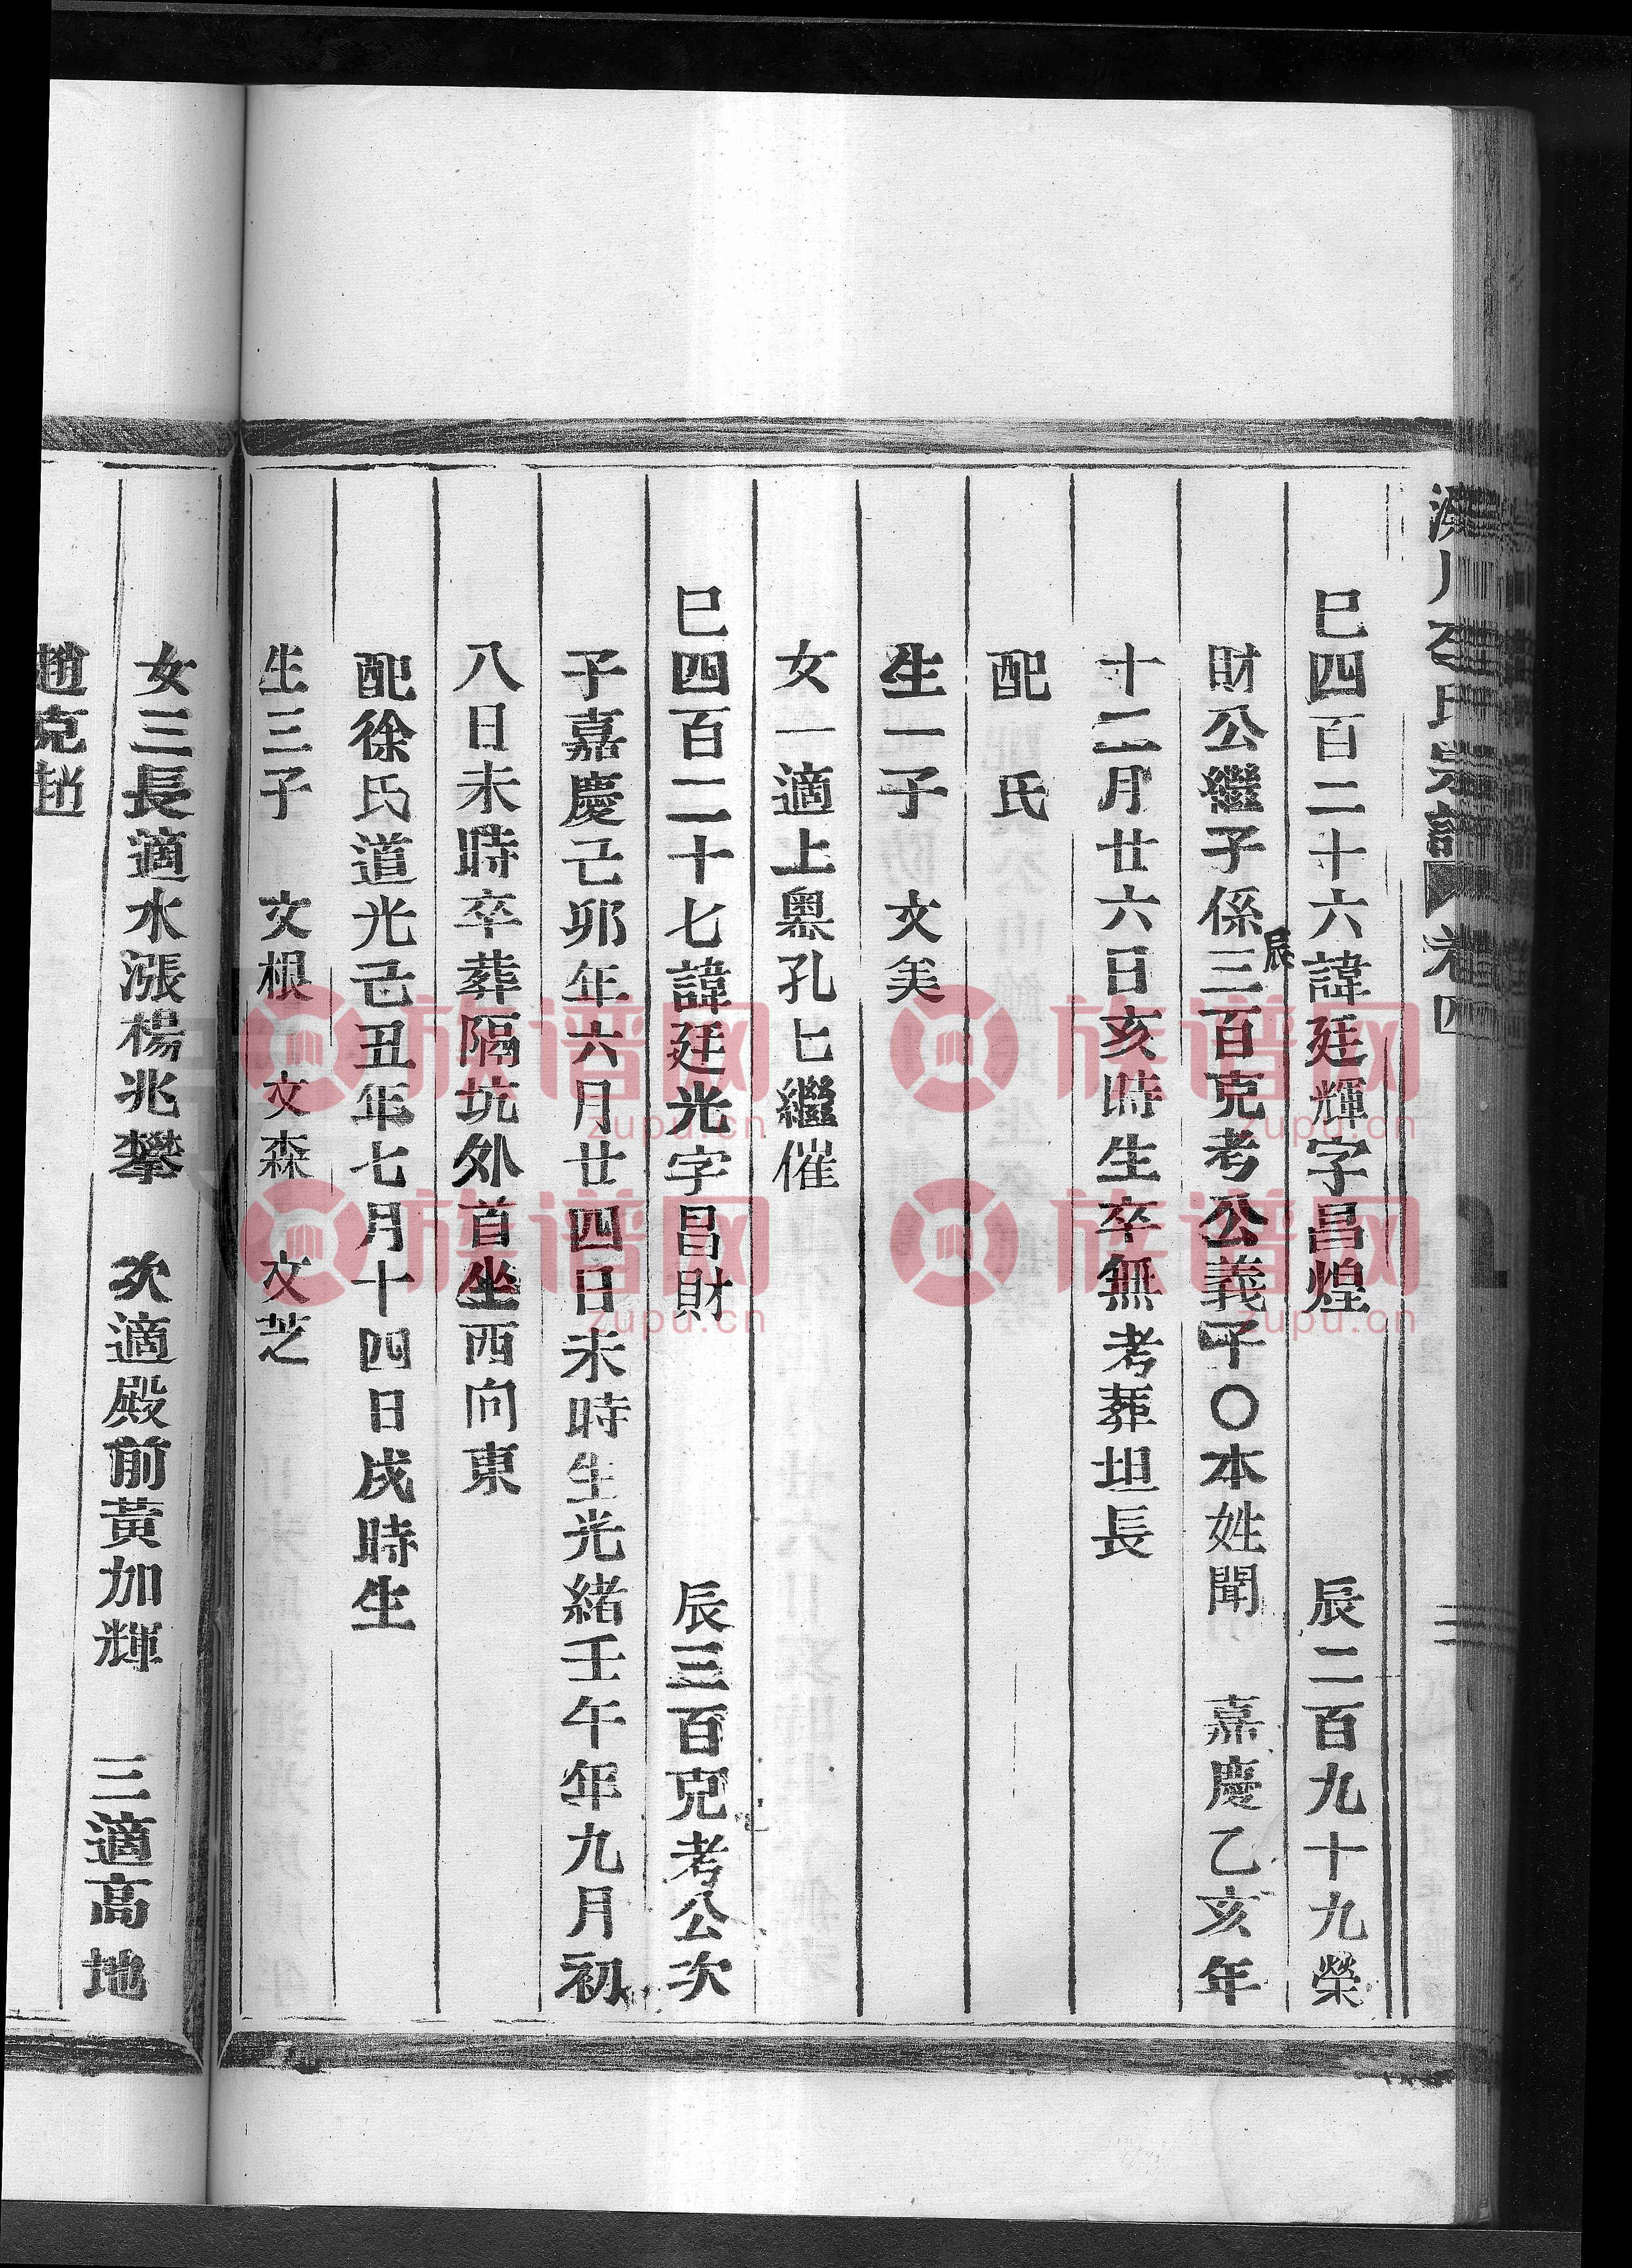 巳四百二十六諱廷輝字昌煌 辰二百九十九榮
財公繼子係辰三百克考公義子〇本姓聞 嘉慶乙亥年
十二月廿六日亥時生卒無考葬坦長
配 氏
生一子 文美
女一適上奧孔七繼催
巳四百二十七諱廷光字昌財 辰三百克考公次
子嘉慶己卯年六月廿四日未時生光緒壬午年九月初
八日未時卒葬隔坑外首坐西向東
配徐氏道光己丑年七月十四日戌時生
生三子 文根 文森 文芝
女三長適水漲楊兆攀 次適殿前黃加輝 三適高地
趙克趙
卷四
族谱网
zupu.cn
族谱网
zupu.cn
族谱网
zupu.cn
族谱网
zupu.cn